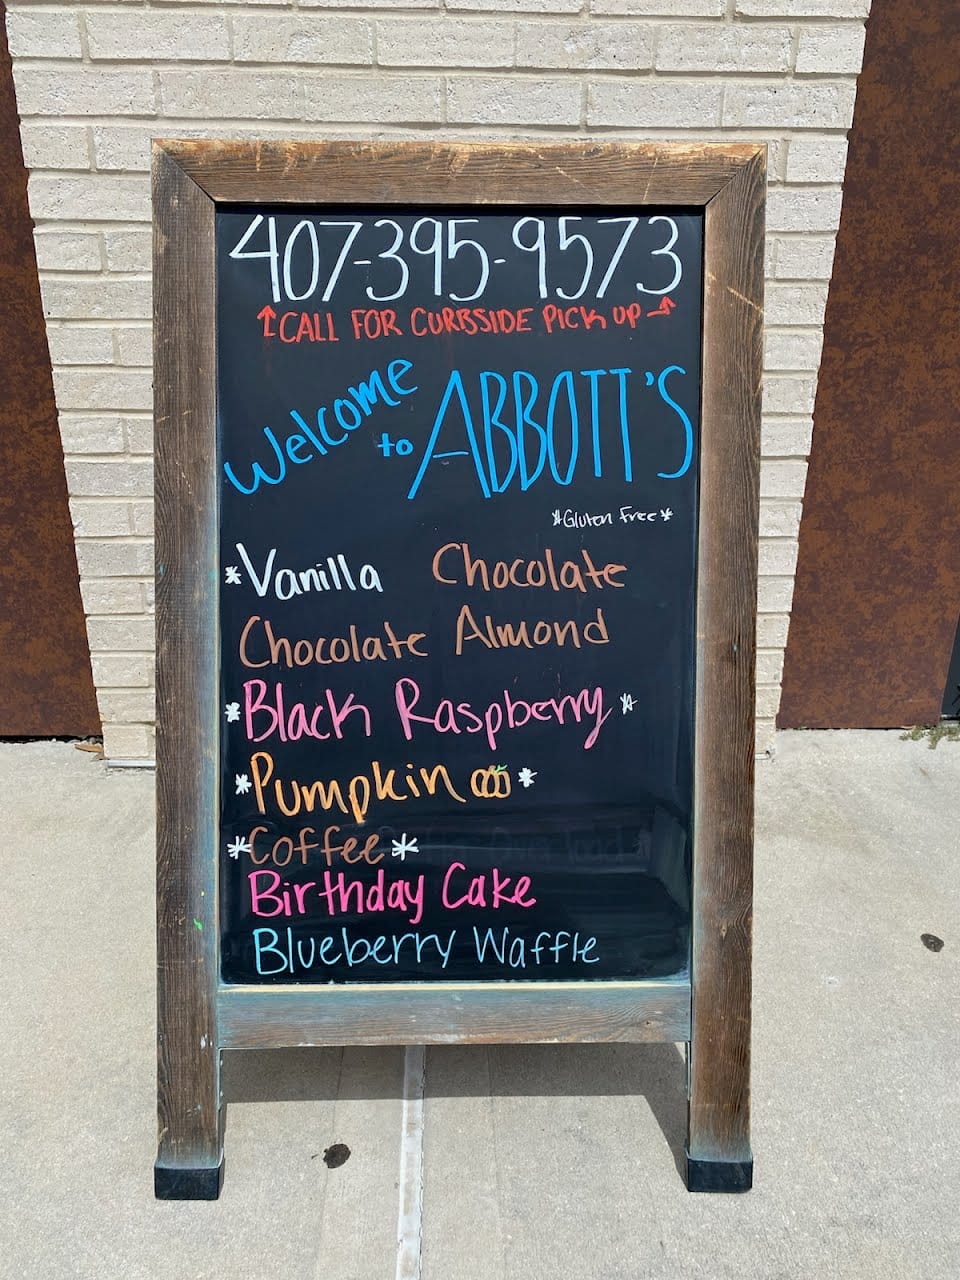 407-395-9573
CALL FOR CURBSIDE PICK UP
Welcome to ABBOTT'S
*Gluten Free*
*Vanilla Chocolate
Chocolate Almond
*Black Raspberry*
*Pumpkin*
*Coffee*
Birthday Cake
Blueberry Waffle